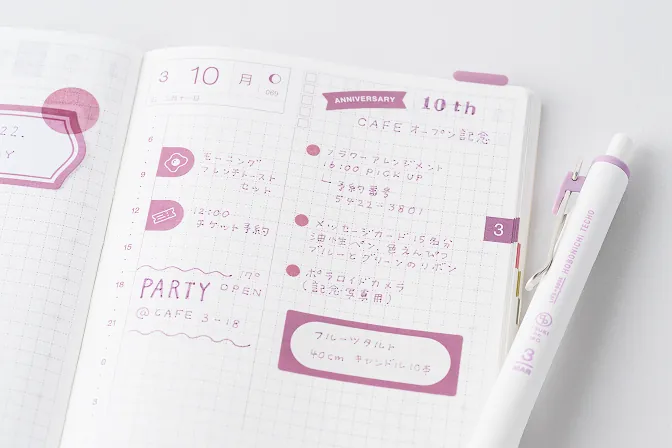 22.
Y
3 10 月
069
6
9
12
15
18
21
0
3
モーニング
フレンチトースト
セット
12:00
チケット予約
17°
PARTY OPEN
@CAFE 3-18
ANNIVERSARY 10th
CAFE オープン記念
フラワーアレンジメント
16:00 PICK UP
予約番号
5422-3801
メッセージカード 15名分
油性ペン、色えんぴつ
ブルーとグリーンのリボン
ポラロイドカメラ
(記念写真用)
フルーツタルト
40cm キャンドル10本
3
HOBONICHI TECHO
3
MAR